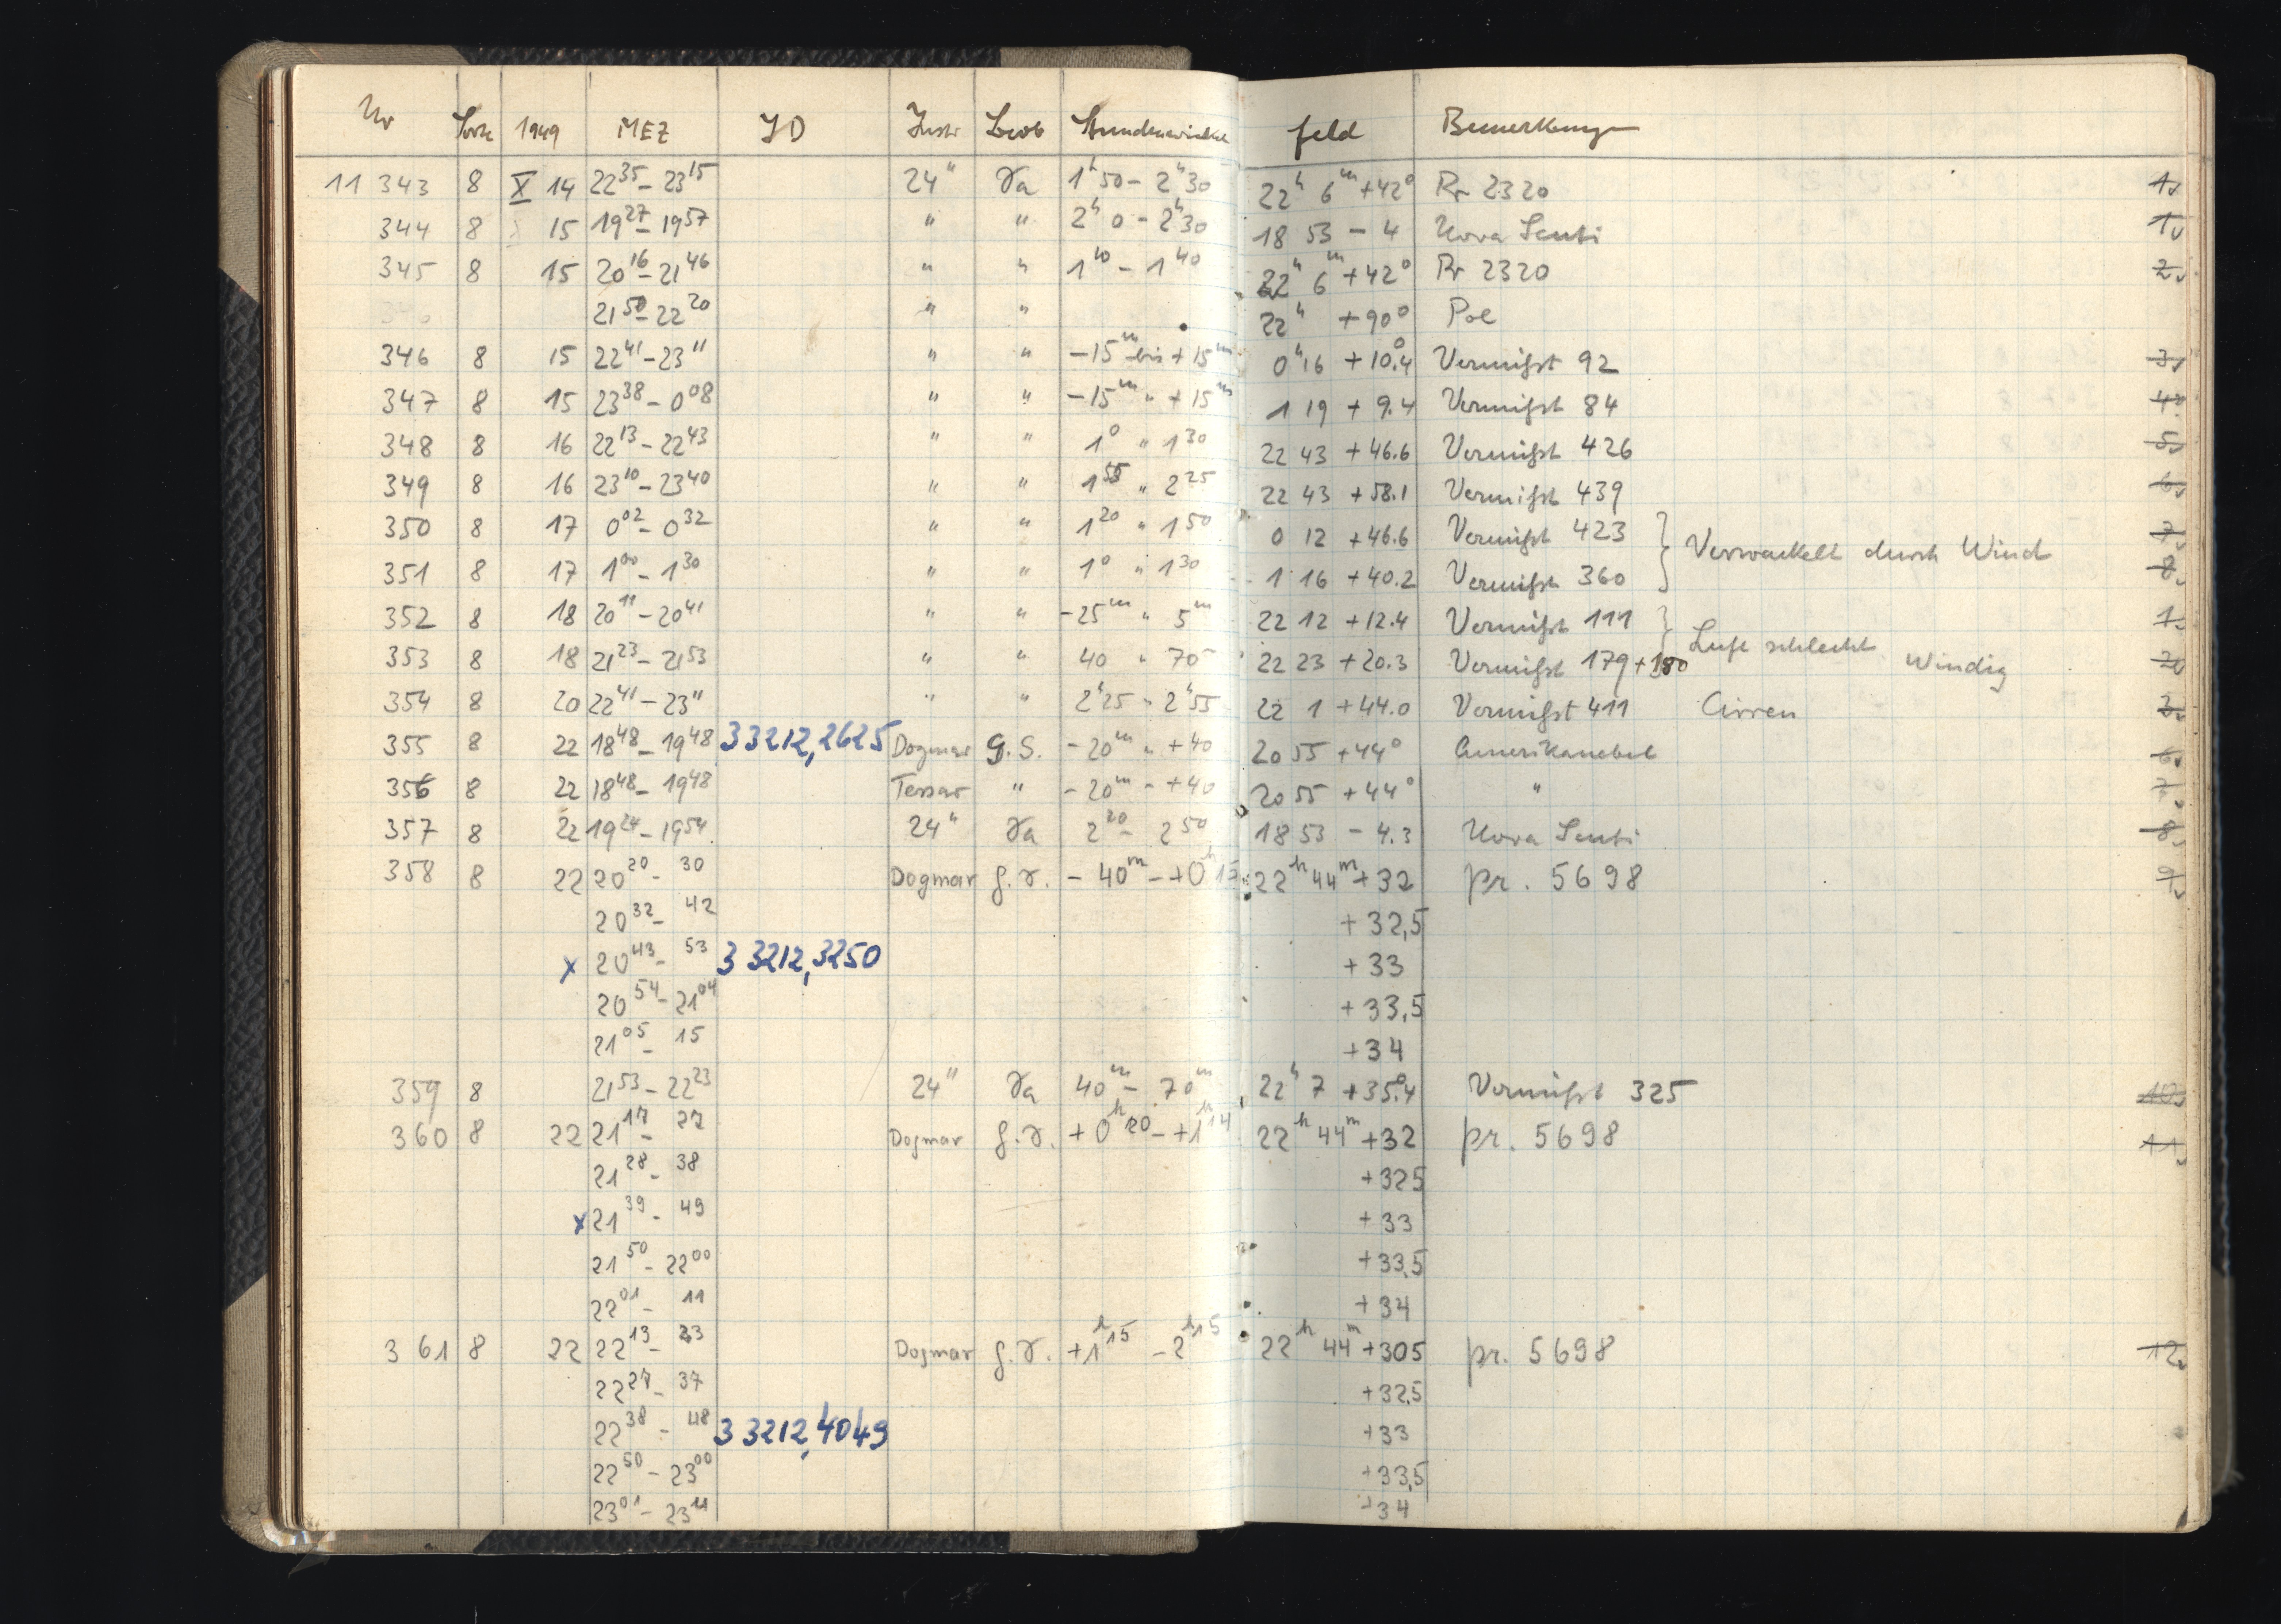 Nr Sorte 1949 MEZ JD Instr Beob Stundenwinkel feld Bemerkungen
11 343 8 X 14 22 35 – 23 15 24" Ta 1h 50 – 2h 30 22h 6m +42° Pr 2320 1
344 8 15 19 27 – 19 57 " " 2h 0 – 2h 30 18 53 – 4 Nova Scuti 1
345 8 15 20 16 – 21 46 " " 1 10 – 1 40 22h 6m +42° Pr 2320 2
21 50 – 22 20 " " 22h +90° Pol
346 8 15 22 41 – 23 11 " " –15m bis +15m 0h 16 +10.°4 Vermißt 92 3
347 8 15 23 38 – 0 08 " " –15m " +15m 1 19 + 9.4 Vermißt 84 4
348 8 16 22 13 – 22 43 " " 1 0 " 1 30 22 43 +46.6 Vermißt 426 5
349 8 16 23 10 – 23 40 " " 1 55 " 2 25 22 43 +58.1 Vermißt 439 6
350 8 17 0 02 – 0 32 " " 1 20 " 1 50 0 12 +46.6 Vermißt 423 7
Verwackelt durch Wind
351 8 17 1 00 – 1 30 " " 1 0 " 1 30 1 16 +40.2 Vermißt 360 8
352 8 18 20 11 – 20 41 " " –25m " 5m 22 12 +12.4 Vermißt 111 1
Luft schlecht
353 8 18 21 23 – 21 53 " " 40 " 70 22 23 +20.3 Vermißt 179+180 Windig 2
354 8 20 22 41 – 23 11 " " 2h 25 " 2h 55 22 1 +44.0 Vermißt 411 Cirren 3
355 8 22 18 48 – 19 48 33212,2625 Dogmar G.S. –20m " +40 20 55 +44° Amerikanebel 6
356 8 22 18 48 – 19 48 Tessar " –20m – +40 20 55 +44° " 7
357 8 22 19 24 – 19 54 24" Ta 2 20 – 2 50 18 53 – 4.3 Nova Scuti 8
358 8 22 20 20 – 30 Dogmar g.T. – 40m – +0h 15 22h 44m +32 pr. 5698 9
20 32 – 42 + 32,5
x 20 43 – 53 33212,3250 + 33
20 54 – 21 04 + 33,5
21 05 – 15 + 34
359 8 21 53 – 22 23 24" Ta 40m – 70m 22h 7 +35.°4 Vermißt 325 10
360 8 22 21 17 – 27 Dogmar g.T. +0h 20 – +1h 14 22h 44m +32 pr. 5698 11
21 28 – 38 +325
x 21 39 – 49 + 33
21 50 – 22 00 +33,5
22 01 – 11 + 34
361 8 22 22 13 – 23 Dogmar g.T. +1h 15 – 2h 15 22h 44m +305 pr. 5698 12
22 27 – 37 +32,5
22 38 – 48 33212,4049 +33
22 50 – 23 00 +33,5
23 01 – 23 11 +34